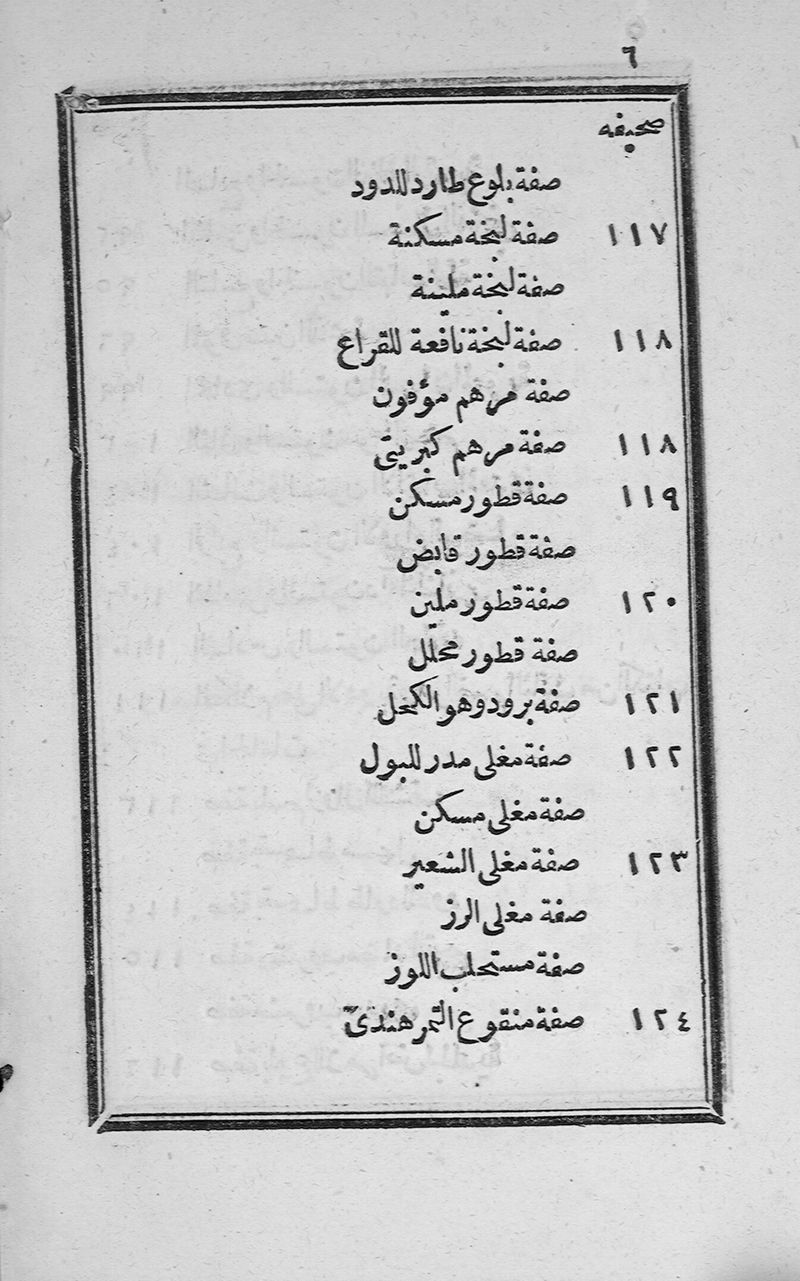 ٦
صحيفه
صفة بلوع طارد للدود
١١٧ صفة لبخة مسكنة
صفة لبخة ملينة
١١٨ صفة لبخة نافعة للقراع
صفة مرهم مؤفون
١١٨ صفة مرهم كبريتى
١١٩ صفة قطور مسكن
صفة قطور قابض
١٢٠ صفة قطور ملين
صفة قطور محلل
١٢١ صفة برود وهو الكحل
١٢٢ صفة مغلى مدر للبول
صفة مغلى مسكن
١٢٣ صفة مغلى الشعير
صفة مغلى الرز
صفة مستحلب اللوز
١٢٤ صفة منقوع التمر هندى